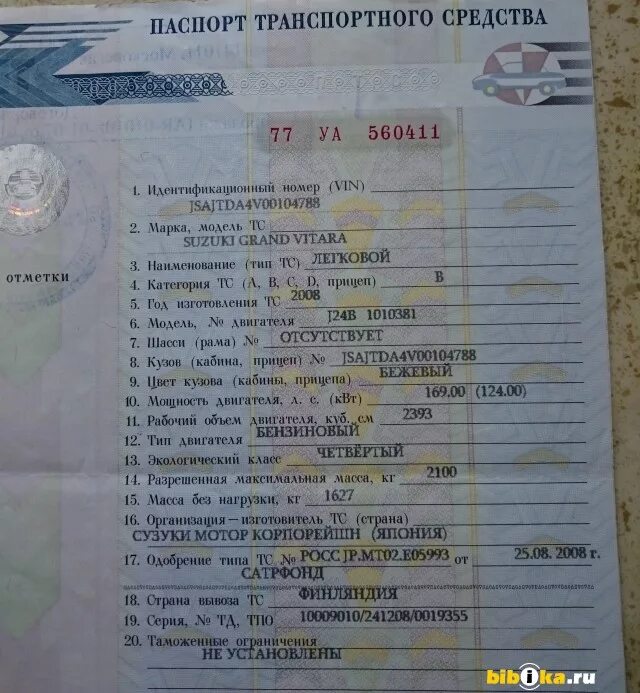 ПАСПОРТ ТРАНСПОРТНОГО СРЕДСТВА
77 УА 560411
отметки
1. Идентификационный номер (VIN)
JSAJTDA4V00104788
2. Марка, модель ТС
SUZUKI GRAND VITARA
3. Наименование (тип ТС) ЛЕГКОВОЙ
4. Категория ТС (A, B, C, D, прицеп) B
5. Год изготовления ТС 2008
6. Модель, № двигателя J24B 1010381
7. Шасси (рама) № ОТСУТСТВУЕТ
8. Кузов (кабина, прицеп) № JSAJTDA4V00104788
9. Цвет кузова (кабины, прицепа) БЕЖЕВЫЙ
10. Мощность двигателя, л. с. (кВт) 169.00 (124.00)
11. Рабочий объем двигателя, куб. см 2393
12. Тип двигателя БЕНЗИНОВЫЙ
13. Экологический класс ЧЕТВЁРТЫЙ
14. Разрешенная максимальная масса, кг 2100
15. Масса без нагрузки, кг 1627
16. Организация – изготовитель ТС (страна)
СУЗУКИ МОТОР КОРПОРЕЙШН (ЯПОНИЯ)
17. Одобрение типа ТС № РОСС JP.MT02.E05993 от 25.08.2008 г.
САТРФОНД
18. Страна вывоза ТС ФИНЛЯНДИЯ
19. Серия, № ТД, ТПО 10009010/241208/0019355
20. Таможенные ограничения
НЕ УСТАНОВЛЕНЫ
bibika.ru